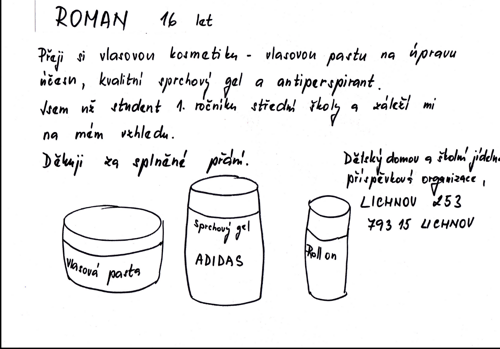 ROMAN 16 let
Přeji si vlasovou kosmetiku - vlasovou pastu na úpravu
účesu, kvalitní sprchový gel a antiperspirant.
Jsem už student 1. ročníku střední školy a záleží mi
na mém vzhledu.
Děkuji za splněné přání.
Dětský domov a školní jídelna
příspěvková organizace,
LICHNOV 253
793 15 LICHNOV
vlasová pasta
sprchový gel
ADIDAS
Roll on